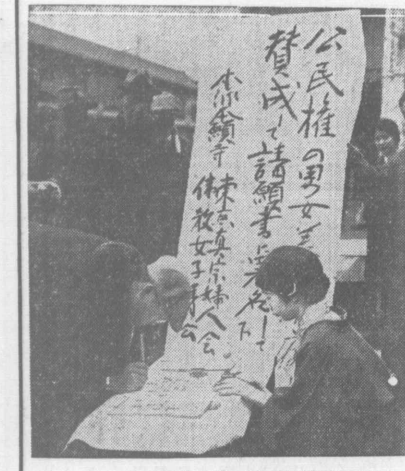 公民権の男女差
賛成して請願書に署名して下
本派本願寺
東京真宗婦人会
佛教女子青